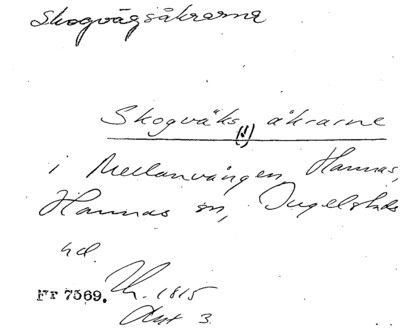 Skogvägsåkrarna
Skogväks(!) åkrarne
i Mellanvången, Hannas,
Hannas sn, Ingelstads
hd.
Fr 7569. 1815
Akt 3.